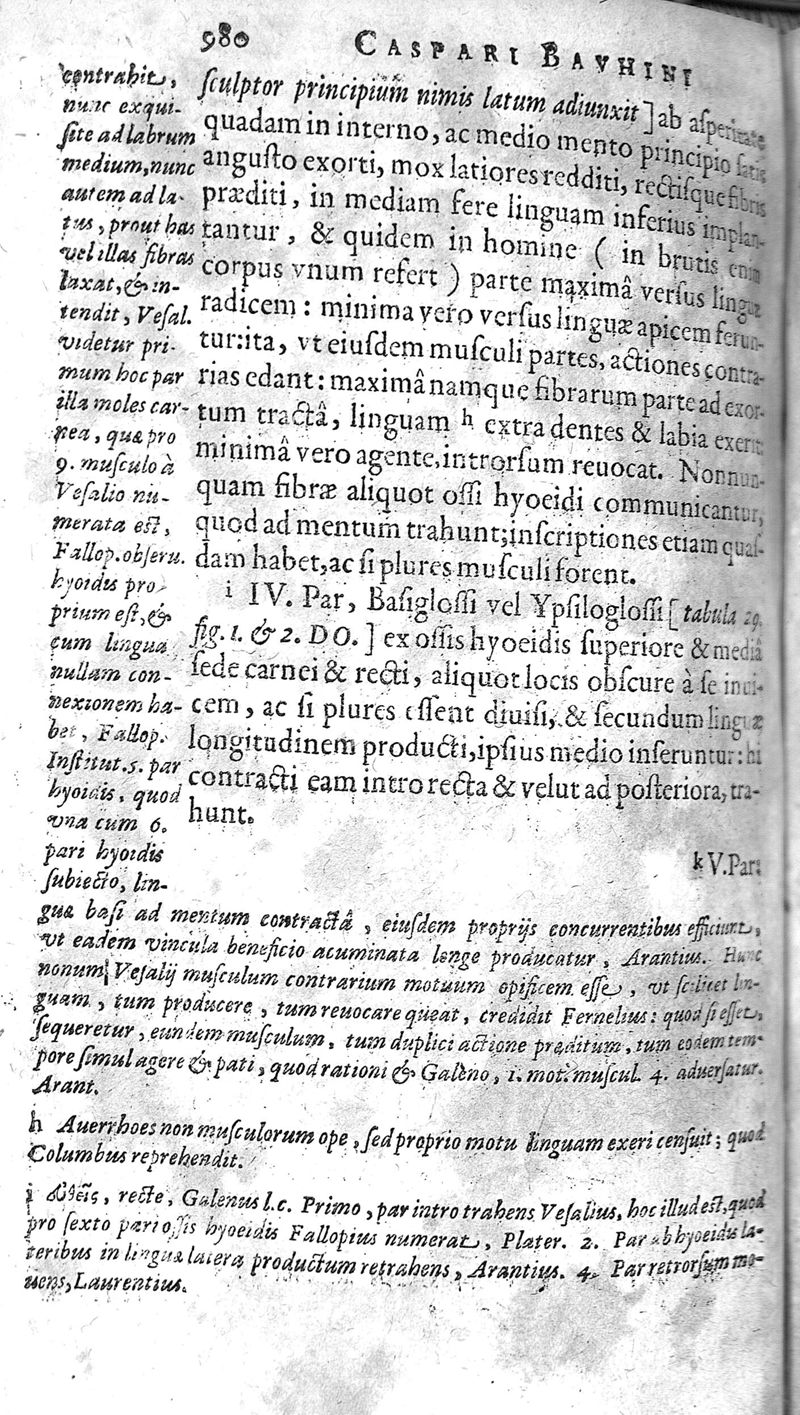 980 CASPARI BAVHINI
sculptor principium nimis latum adiunxit ] ab asperitate
quadam in interno, ac medio mento principio satis
angusto exorti, mox latiores redditi, rectisque fibris
præditi, in mediam fere linguam inferius implan-
tantur, & quidem in homine ( in brutis enim
corpus vnum refert ) parte maximâ versus linguæ
radicem : minima vero versus linguæ apicem ferun-
tur: ita, vt eiusdem musculi partes, actiones contra-
rias edant : maximâ namque fibrarum parte ad exor-
tum tractâ, linguam h extra dentes & labia exerit
minimâ vero agente, introrsum reuocat. Nonnun-
quam fibræ aliquot ossi hyoeidi communicantur,
quod ad mentum trahunt; inscriptiones etiam quas-
dam habet, ac si plures musculi forent.
i IV. Par, Basiglossi vel Ypsiloglossi [ tabula 29.
fig. 1. & 2. DO. ] ex ossis hyoeidis superiore & mediâ
sede carnei & recti, aliquot locis obscure à se inui-
cem, ac si plures essent diuisi, & secundum linguæ
longitudinem producti, ipsius medio inseruntur: hi
contracti eam intro recta & velut ad posteriora, tra-
hunt.
k V. Par:
contrahit,
nunc exqui-
site ad labrum
medium, nunc
autem ad la-
tus, prout has
vel illas fibras
laxat, & in-
tendit, Vesal.
videtur pri-
mum hoc par
illa moles car-
nea, quæ pro
9. musculo à
Vesalio nu-
merata est,
Fallop. obseru.
hyoidis pro-
prium est, &
cum lingua
nullam con-
nexionem ha-
bet, Fallop.
Institut. 5. par
hyoidis, quod
vna cum 6.
pari hyoidis
subiecto, lin-
guæ basi ad mentum contractâ, eiusdem proprijs concurrentibus efficiunt,
vt eadem vincula beneficio acuminata longe producatur, Arantius. Hunc
nonum Vesalij musculum contrarium motuum opificem esse, vt scilicet lin-
guam, tum producere, tum reuocare queat, credidit Fernelius : quod si esset,
sequeretur, eundem musculum, tum duplici actione præditum, tum eodem tem-
pore simul agere & pati, quod rationi & Galeno, 1. mot. muscul. 4. aduersatur.
Arant.
h Auerrhoes non musculorum ope, sed proprio motu linguam exeri censuit; quod
Columbus reprehendit.
i , recte, Galenus l.c. Primo, par intro trahens Vesalius, hoc illud est, quod
pro sexto pari ossis hyoeidis Fallopius numerat, Plater. 2. Par ab hyoeidis la-
teribus in linguæ latera productum retrahens, Arantius. 4. Par retrorsum mo-
uens, Laurentius.